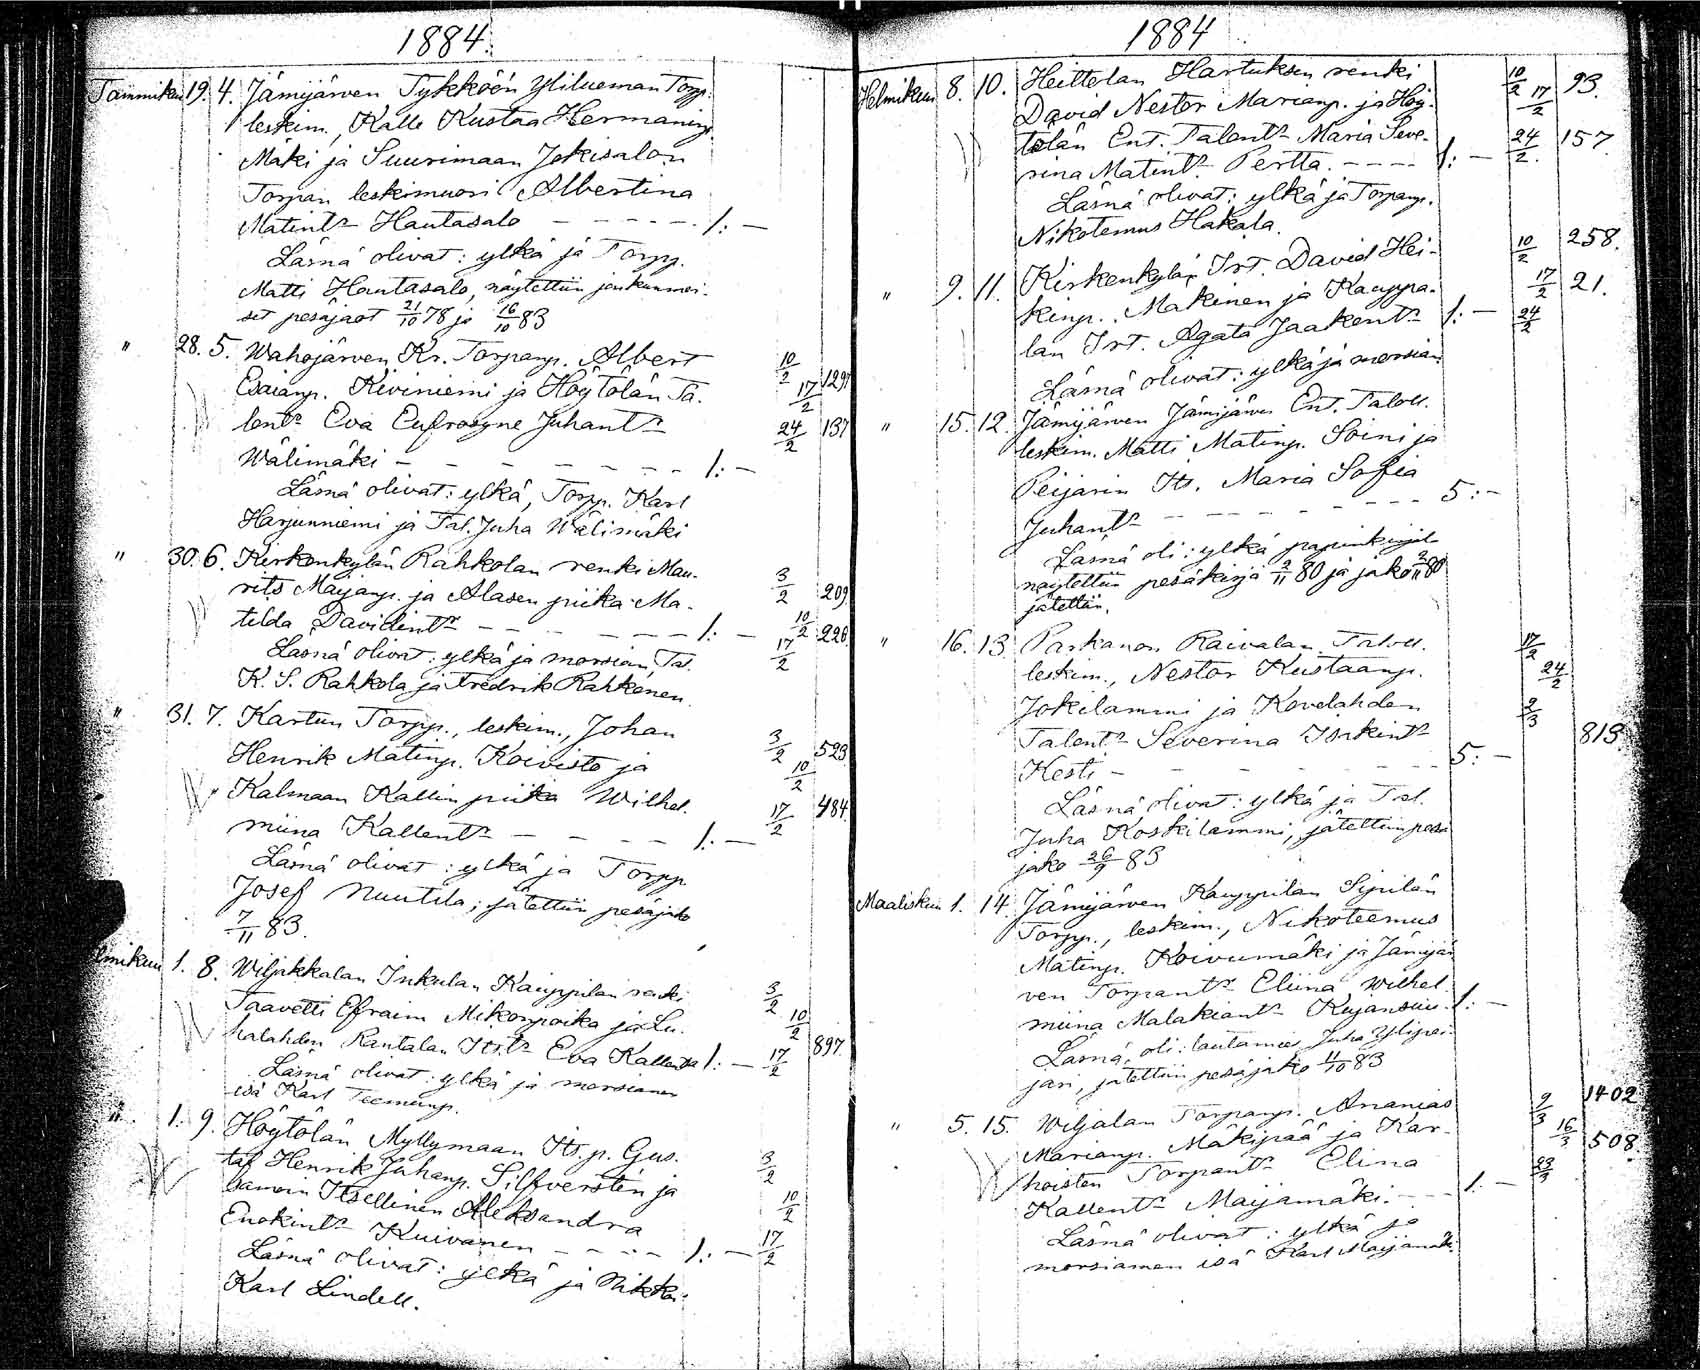 1884.
Tammikuu 19. 4. Jämijärven Tykköön Yliluoman Torp.
leskim., Kalle Kustaa Hermaninp.
Mäki ja Suurimaan Jokisalon
Torpan leskimuori Albertina
Matintr Hautasalo - - - - - 1: -
Läsnä olivat: ylkä ja Torpp.
Matti Hautasalo, näytettiin
set pesäjaot 21/10 78 ja 16/10 83
" 28. 5. Wahojärven Kr. Torpanp. Albert 10/2 129
Esaianp. Kiviniemi ja Höytölän Ta- 17/2
lentr Eva Eufrosyne Juhantr 24/2 137
Wälimäki - - - - - - - - 1: -
Läsnä olivat: ylkä, Torpp. Karl
Harjunniemi ja Tal. Juha Wälimäki
" 30. 6. Kirkonkylän Rahkolan renki Mau- 3/2 209
rits Maijanp. ja Alasen piika Ma-
tilda Davidintr - - - - - - 1: - 10/2 226
Läsnä olivat: ylkä ja morsian, Tal. 17/2
K. S. Rahkola ja Fredrik Rahkonen.
" 31. 7. Kartun Torpp., leskim., Johan 3/2 523
Henrik Matinp. Koivisto ja 10/2
Kalmaan Kallin piika Wilhel- 17/2 484
miina Kallentr - - - - - 1: -
Läsnä olivat: ylkä ja Torpp.
Josef Nuutila; jätettiin pesäjako
7/11 83.
lmikuu 1. 8. Wiljakkalan Inkulan Kauppilan renki 3/2
Taavetti Efraim Mikonpoika ja Lu- 10/2
halahden Rantalan Itstr Eva Kallentr 1: - 17/2 897
Läsnä olivat: ylkä ja morsiamen
isä Karl Teemunp.
" 1. 9. Höytölän Myllymaan Its. p. Gus-
taf Henrik Juhanp. Silfversten ja 3/2
samoin Itsellinen Aleksandra 10/2
Enokintr Kuivanen - - - - 1: - 17/2
Läsnä olivat: ylkä ja Nikkari
Karl Lindell.
1884
Helmikuu 8. 10. Heittolan Hartuksen renki 10/2 93.
David Nestor Marianp. ja Höy- 17/2
tölän Ent. Talontr Maria Seve- 24/2 157
rina Matintr Perttä. - - - - 1: -
Läsnä olivat: ylkä ja Torpanp.
Nikotemus Hakala.
" 9. 11. Kirkonkylän Irt. David Hei- 10/2 258.
kinp. Mäkinen ja Kauppa- 17/2 21.
lan Irt. Agata Jaakontr 1: - 24/2
Läsnä olivat: ylkä ja morsian.
" 15. 12. Jämijärven Jämijärven Ent. Talol.
leskim. Matti Matinp. Soini ja
Peijarin Its. Maria Sofia
Juhantr - - - - - - - 5: -
Läsnä oli: ylkä papinkirjal-
näytettiin pesäkirja 2/11 80 ja jako 2/11 80
jätettiin.
" 16. 13. Parkanon Raivalan Talol. 17/2
leskim., Nestor Kustaanp. 24/2
Jokilammi ja Kovelahden 2/3
Talontr Severina Isakintr 813
Kesti - - - - - - - 5: -
Läsnä olivat: ylkä ja Tal.
Juha Koskilammi, jätettiin pesä
jako 26/9 83
Maaliskuu 1. 14. Jämijärven Kauppilan Sipilän
Torpp., leskim., Nikoteemus
Matinp. Koivumäki ja Jämijär
ven Torpantr Eliina Wilhel-
miina Malakiantr Kujansuu. 1: -
Läsnä oli: lautamies Juha Ylipei-
jari, jätettiin pesäjako 11/10 83
" 5. 15. Wiljalan Torpanp. Ananias 9/3 1402
Marianp. Mäkipää ja Kar- 16/3 508
hoisten Torpantr Elina 23/3
Kallentr Maijamäki. - - - 1: -
Läsnä olivat: ylkä ja
morsiamen isä Karl Maijamäki.